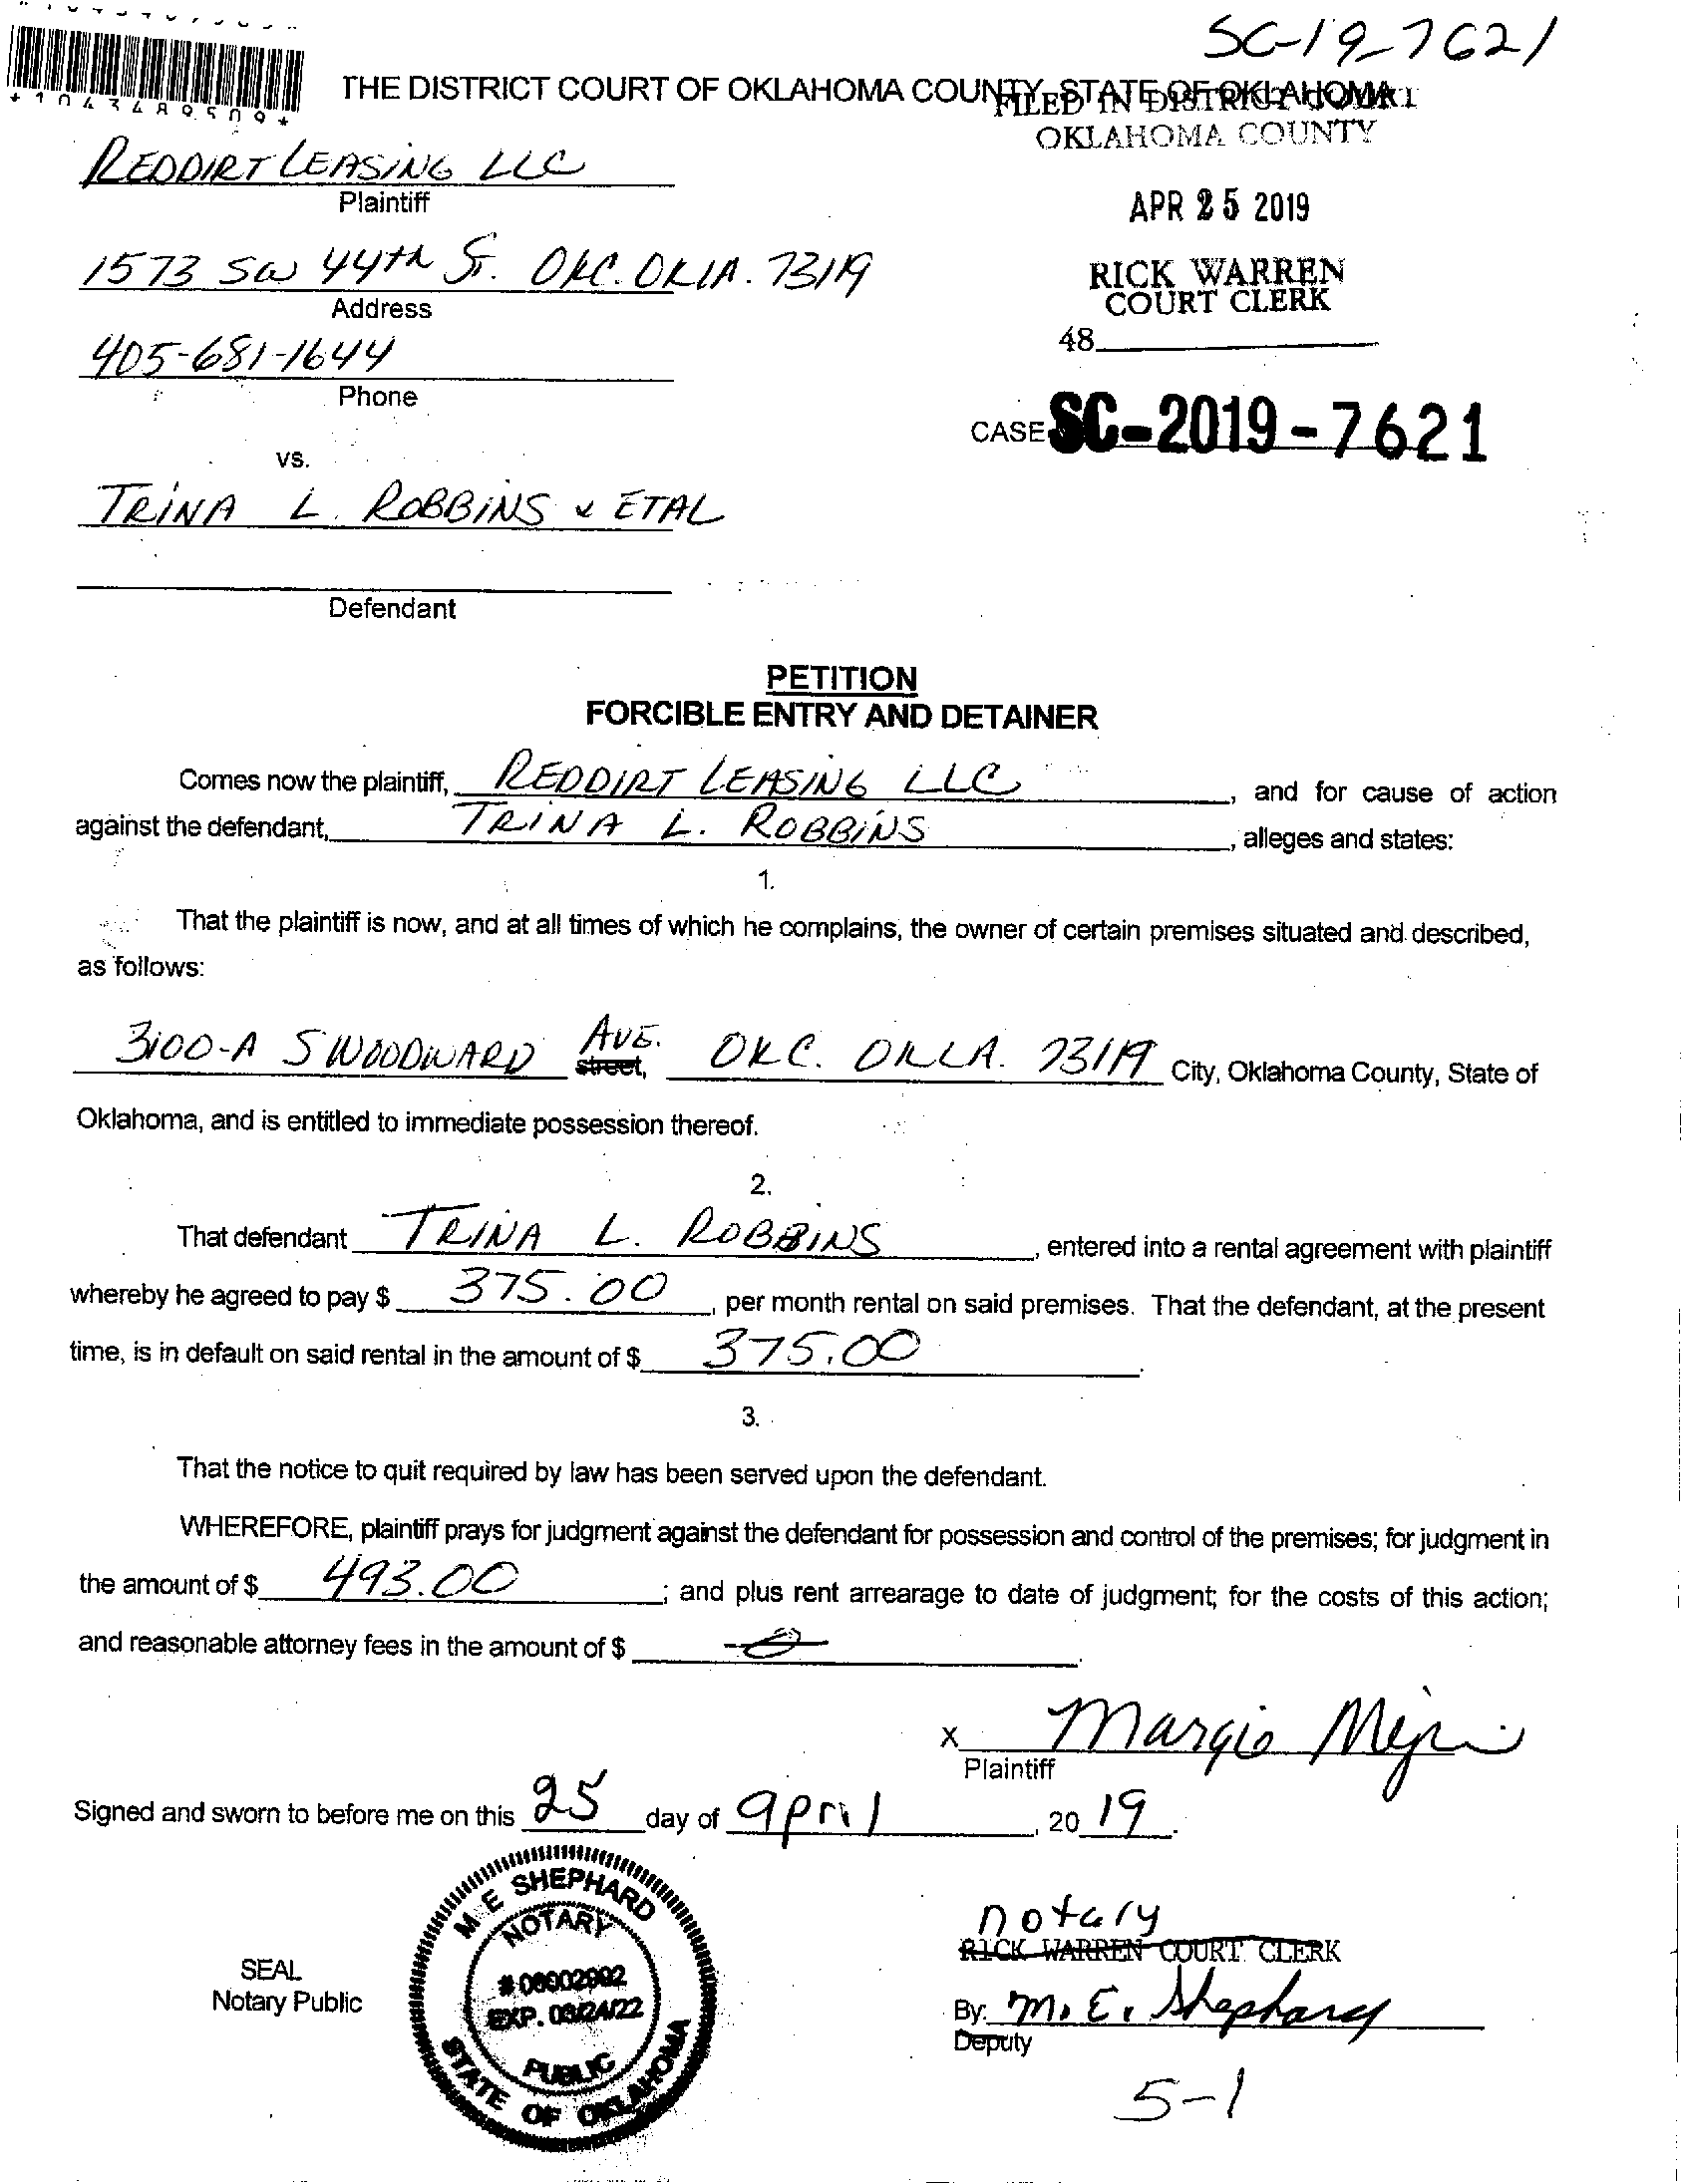 SC-19-7621
*1043489509*
THE DISTRICT COURT OF OKLAHOMA COUNTY, STATE OF OKLAHOMA
FILED IN DISTRICT COURT
OKLAHOMA COUNTY
REDDIRT LEASING LLC
Plaintiff
APR 25 2019
1573 SW 44th St. OKC. OKLA. 73119
Address
RICK WARREN
COURT CLERK
405-681-1644
Phone
48
CASE SC-2019-7621
vs.
TRINA L. ROBBINS & ETAL
Defendant
PETITION
FORCIBLE ENTRY AND DETAINER
Comes now the plaintiff, REDDIRT LEASING LLC, and for cause of action
against the defendant, TRINA L. ROBBINS, alleges and states:
1.
That the plaintiff is now, and at all times of which he complains, the owner of certain premises situated and described,
as follows:
3100-A S WOODWARD AVE. street, OKC. OKLA. 73119 City, Oklahoma County, State of
Oklahoma, and is entitled to immediate possession thereof.
2.
That defendant TRINA L. ROBBINS, entered into a rental agreement with plaintiff
whereby he agreed to pay $ 375.00, per month rental on said premises. That the defendant, at the present
time, is in default on said rental in the amount of $ 375.00.
3.
That the notice to quit required by law has been served upon the defendant.
WHEREFORE, plaintiff prays for judgment against the defendant for possession and control of the premises; for judgment in
the amount of $ 493.00; and plus rent arrearage to date of judgment; for the costs of this action;
and reasonable attorney fees in the amount of $ 0.
X Margie
Plaintiff
Signed and sworn to before me on this 25 day of april, 20 19.
M E SHEPHARD
NOTARY
# 06002992
EXP. 03/24/22
PUBLIC
STATE OF OKLAHOMA
SEAL
Notary Public
notary
RICK WARREN COURT CLERK
By: M. E. Shephard
Deputy
5-1